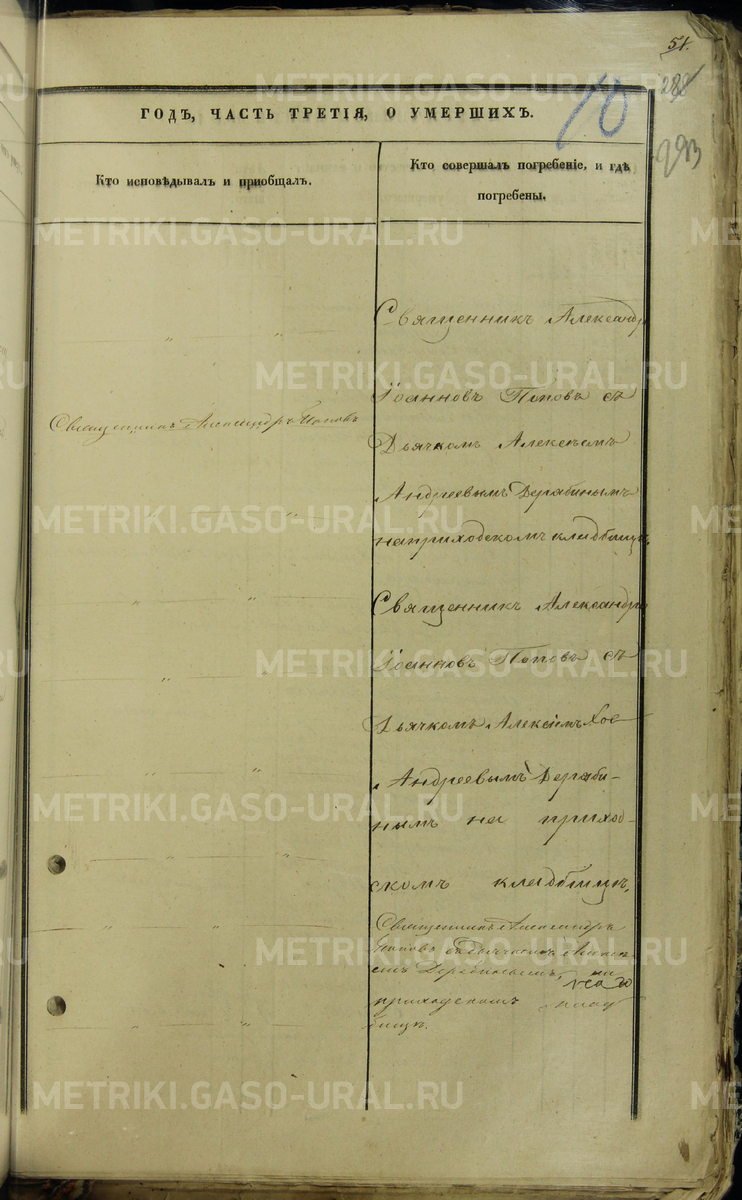 51.
282
293
10
ГОДѢ, ЧАСТЬ ТРЕТІЯ, О УМЕРШИХЪ.
Кто исповѣдывалъ и пріобщалъ.
Кто совершалъ погребеніе, и гдѣ
погребены.
Священникъ Александръ Поповъ
Священникъ Александръ
Іоанновъ Поповъ съ
Дьячкомъ Алексѣемъ
Андреевымъ Дерябинымъ
на приходскомъ кладбищѣ.
Священникъ Александръ
Іоанновъ Поповъ съ
Дьячкомъ Алексѣемъ
Андреевымъ Деряби-
нымъ на приход-
скомъ кладбищѣ.
Священникъ Александръ
Поповъ съ дьячкомъ Алексѣ-
емъ Дерябинымъ, на
приходскомъ клад
бищѣ.
METRIKI.GASO-URAL.RU